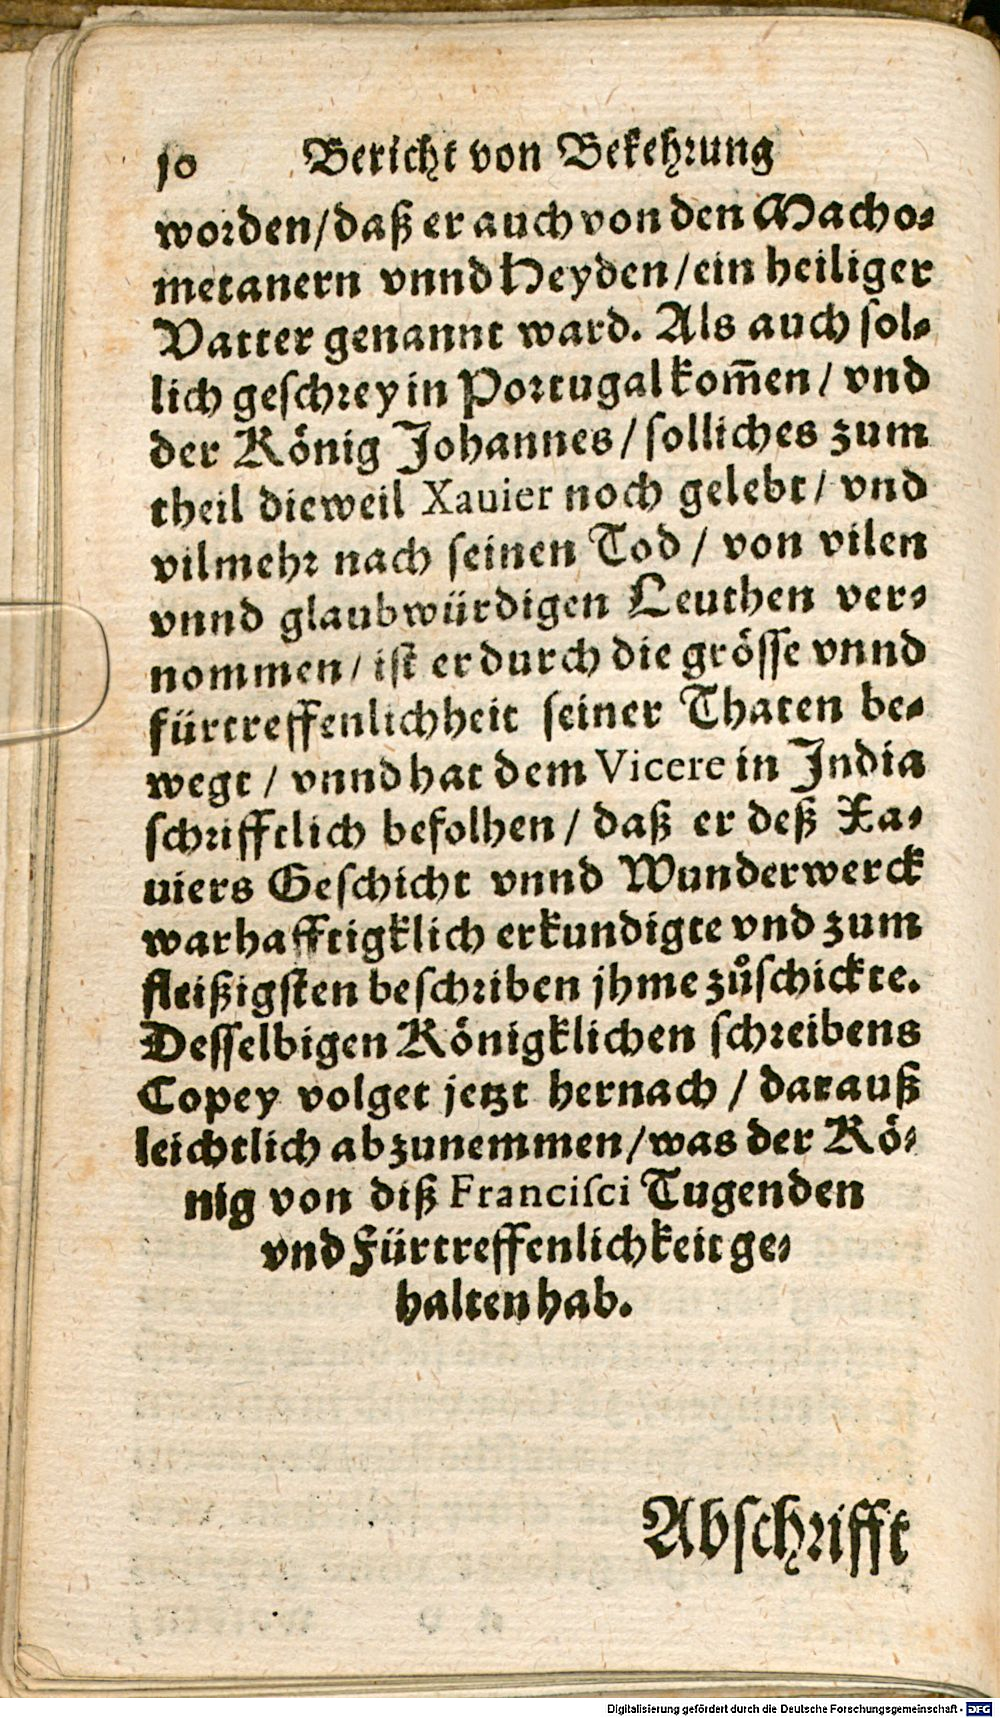 10 Bericht von Bekehrung
worden/daß er auch von den Macho⸗
metanern vnnd Heyden/ein heiliger
Vatter genannt ward. Als auch ſol⸗
lich geſchrey in Portugal kom̄en/ vnd
der König Johannes/ſolliches zum
theil dieweil Xauier noch gelebt/ vnd
vilmehr nach ſeinen Tod / von vilen
vnnd glaubwürdigen Leuthen ver⸗
nommen/ iſt er durch die gröſſe vnnd
fürtreffenlichheit ſeiner Thaten be⸗
wegt / vnnd hat dem Vicere in India
ſchrifftlich befolhen / daß er deß Xa⸗
uiers Geſchicht vnnd Wunderwerck
warhafftigklich erkundigte vnd zum
fleißigſten beſchriben jhme zůſchickte.
Deſſelbigen Königklichen ſchreibens
Copey volget jetzt hernach / darauß
leichtlich abzunemmen/was der Kö⸗
nig von diß Franciſci Tugenden
vnd Fürtreffenlichkeit ge⸗
halten hab.
Abſchrifft
Digitalisierung gefördert durch die Deutsche Forschungsgemeinschaft - DFG